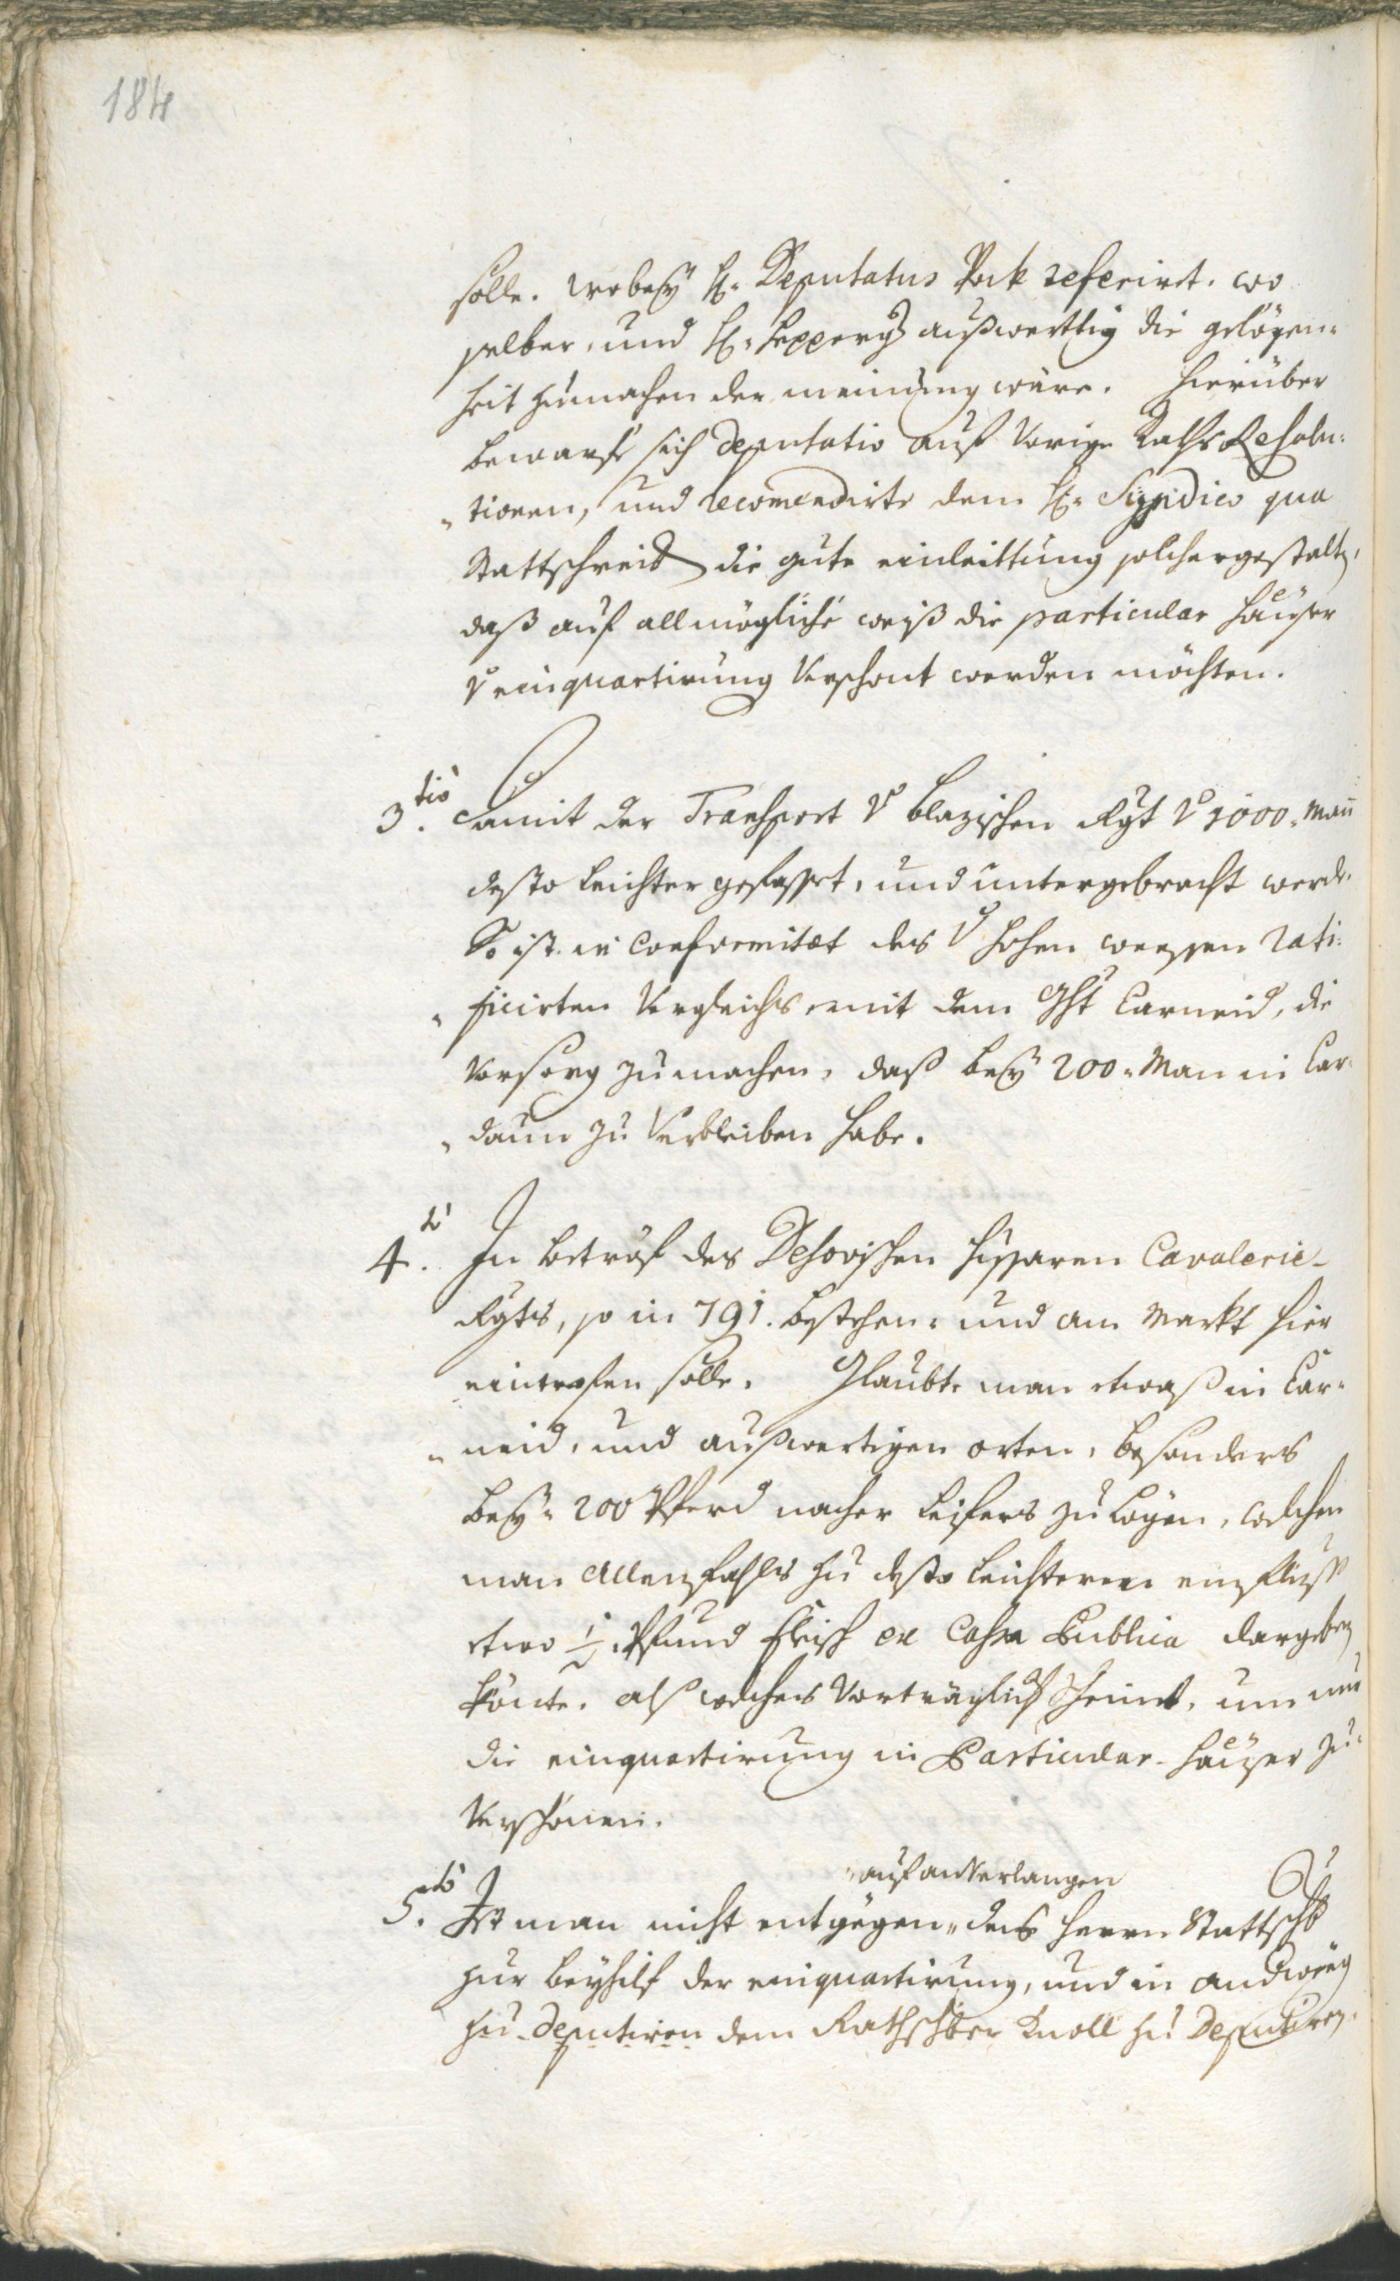 184
solle. wobeÿ H: Deputatus Pock referirt. wo
selber, und H: auswerttig die gelögen=
heit zu machen der meinung wäre. Hierüber
bewarfe sich deputatio auf vorige Raths Resolu=
"tionen, und recomendirte dem H: Syndico qua
Stattschreib die gute einleittung solchergestalten,
daß auf all mögliche weiß die particular Häußer
v einquartirung verschont werden möchten.
3.tio Damit der Transport v blazischen Rgt v 1000. Mann
desto leichter gefasset, und untergebracht werde.
So ist in Conformitæt des v hohen wessen rati=
"ficirten Vergleichs mit dem Ght Carneid, die
Vorsorg zu machen, daß beÿ 200. Man in Car=
"daun zu verbleiben habe.
4.to In betröf des Desovischen Hussaren Cavalerie-
Rgts, so in 791. bestehen: und am Markt hier
eintrefen solle. Glaubte man etwaß in Car=
"neid, und außwertigen orten, besonders
beÿ 200 Pferd nacher Leifers zu lögen, welchen
man allenfahls zu desto leichteren einfluß
etwo ½ Pfund Fleisch ex Cassa Publica dargeben
könte. als welches vorträglich scheint, um nur
die einquartirung in Particular-Häuser zu
verschonen.
"auf anverlangen
5.to Ist man nicht entgegen "des Herrn Stattschb
zur beÿhilf der einquartirung, und in
zu deputiren dem Rathschber Knoll zu Deputiren.